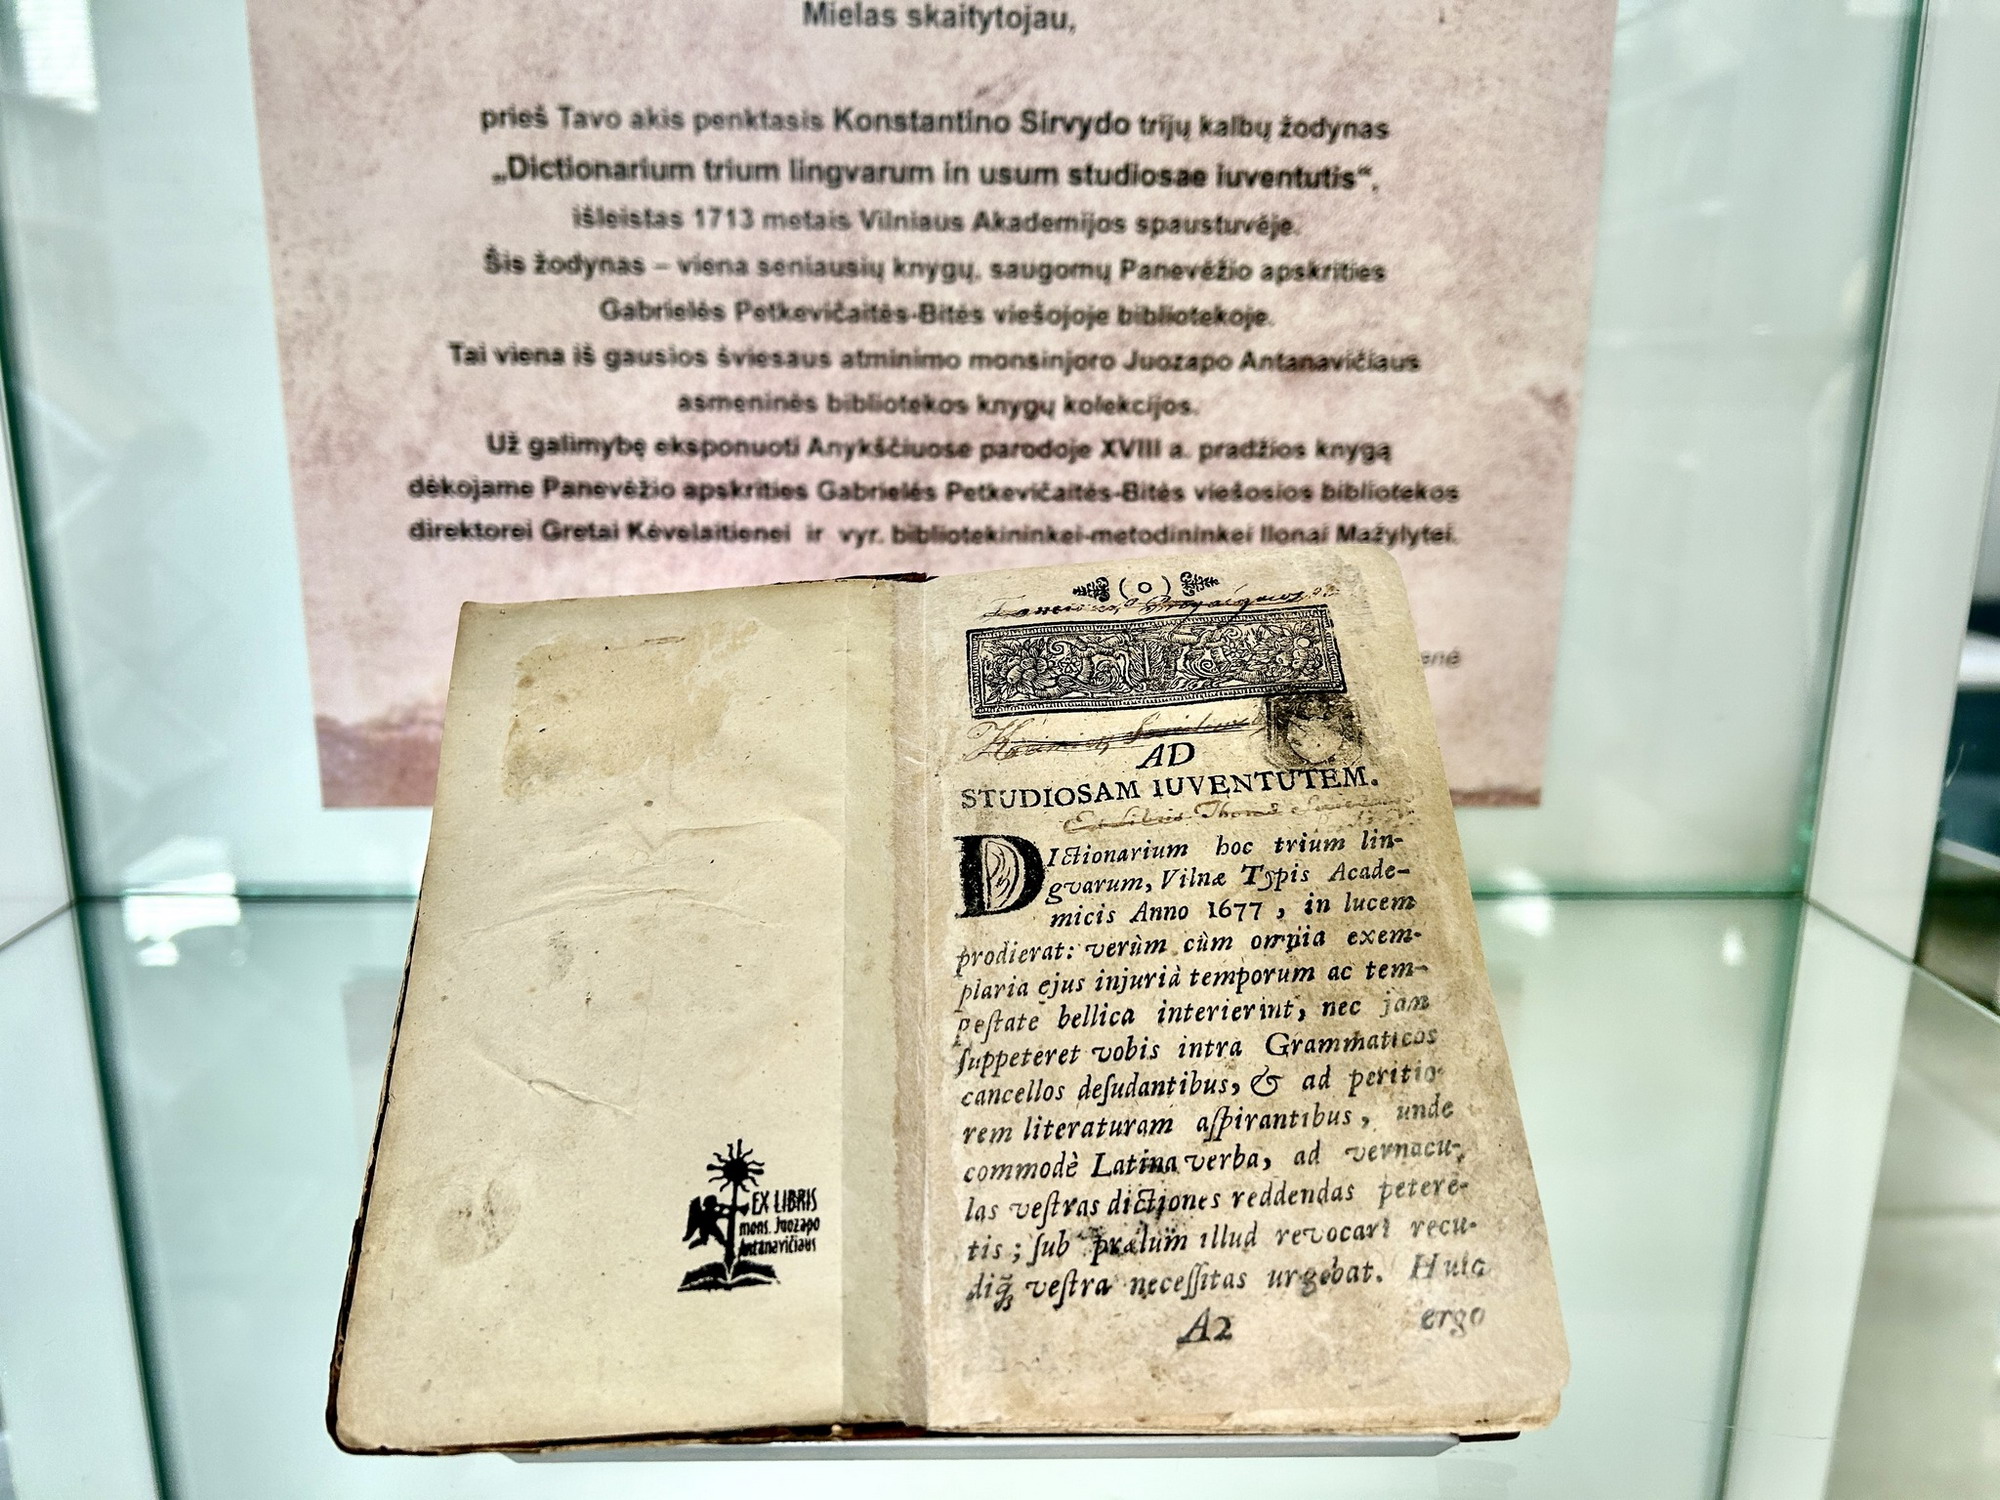 Mielas skaitytojau,
prieš Tavo akis penktasis Konstantino Sirvydo trijų kalbų žodynas
„Dictionarium trium lingvarum in usum studiosae iuventutis“,
išleistas 1713 metais Vilniaus Akademijos spaustuvėje.
Šis žodynas – viena seniausių knygų, saugomų Panevėžio apskrities
Gabrielės Petkevičaitės-Bitės viešojoje bibliotekoje.
Tai viena iš gausios šviesaus atminimo monsinjoro Juozapo Antanavičiaus
asmeninės bibliotekos knygų kolekcijos.
Už galimybę eksponuoti Anykščiuose parodoje XVIII a. pradžios knygą
dėkojame Panevėžio apskrities Gabrielės Petkevičaitės-Bitės viešosios bibliotekos
direktorei Gretai Kėvelaitienei ir vyr. bibliotekininkei-metodininkei Ilonai Mažylytei.
EX LIBRIS
mons. Juozapo
Antanavičiaus
AD
STUDIOSAM IUVENTUTEM.
Ex Libris Thomæ
DIctionarium hoc trium lin-
gvarum, Vilnæ Typis Acade-
micis Anno 1677, in lucem
prodierat: verùm cùm omnia exem-
plaria ejus injuriâ temporum ac tem-
peſtate bellica interierint, nec jam
ſuppeteret vobis intra Grammaticos
cancellos deſudantibus, & ad peritio-
rem literaturam aſpirantibus, unde
commodè Latina verba, ad vernacu-
las veſtras dictiones reddendas petere-
tis; ſub prælum illud revocari recu-
diq̃; veſtra neceſſitas urgebat. Huic
A2 ergo